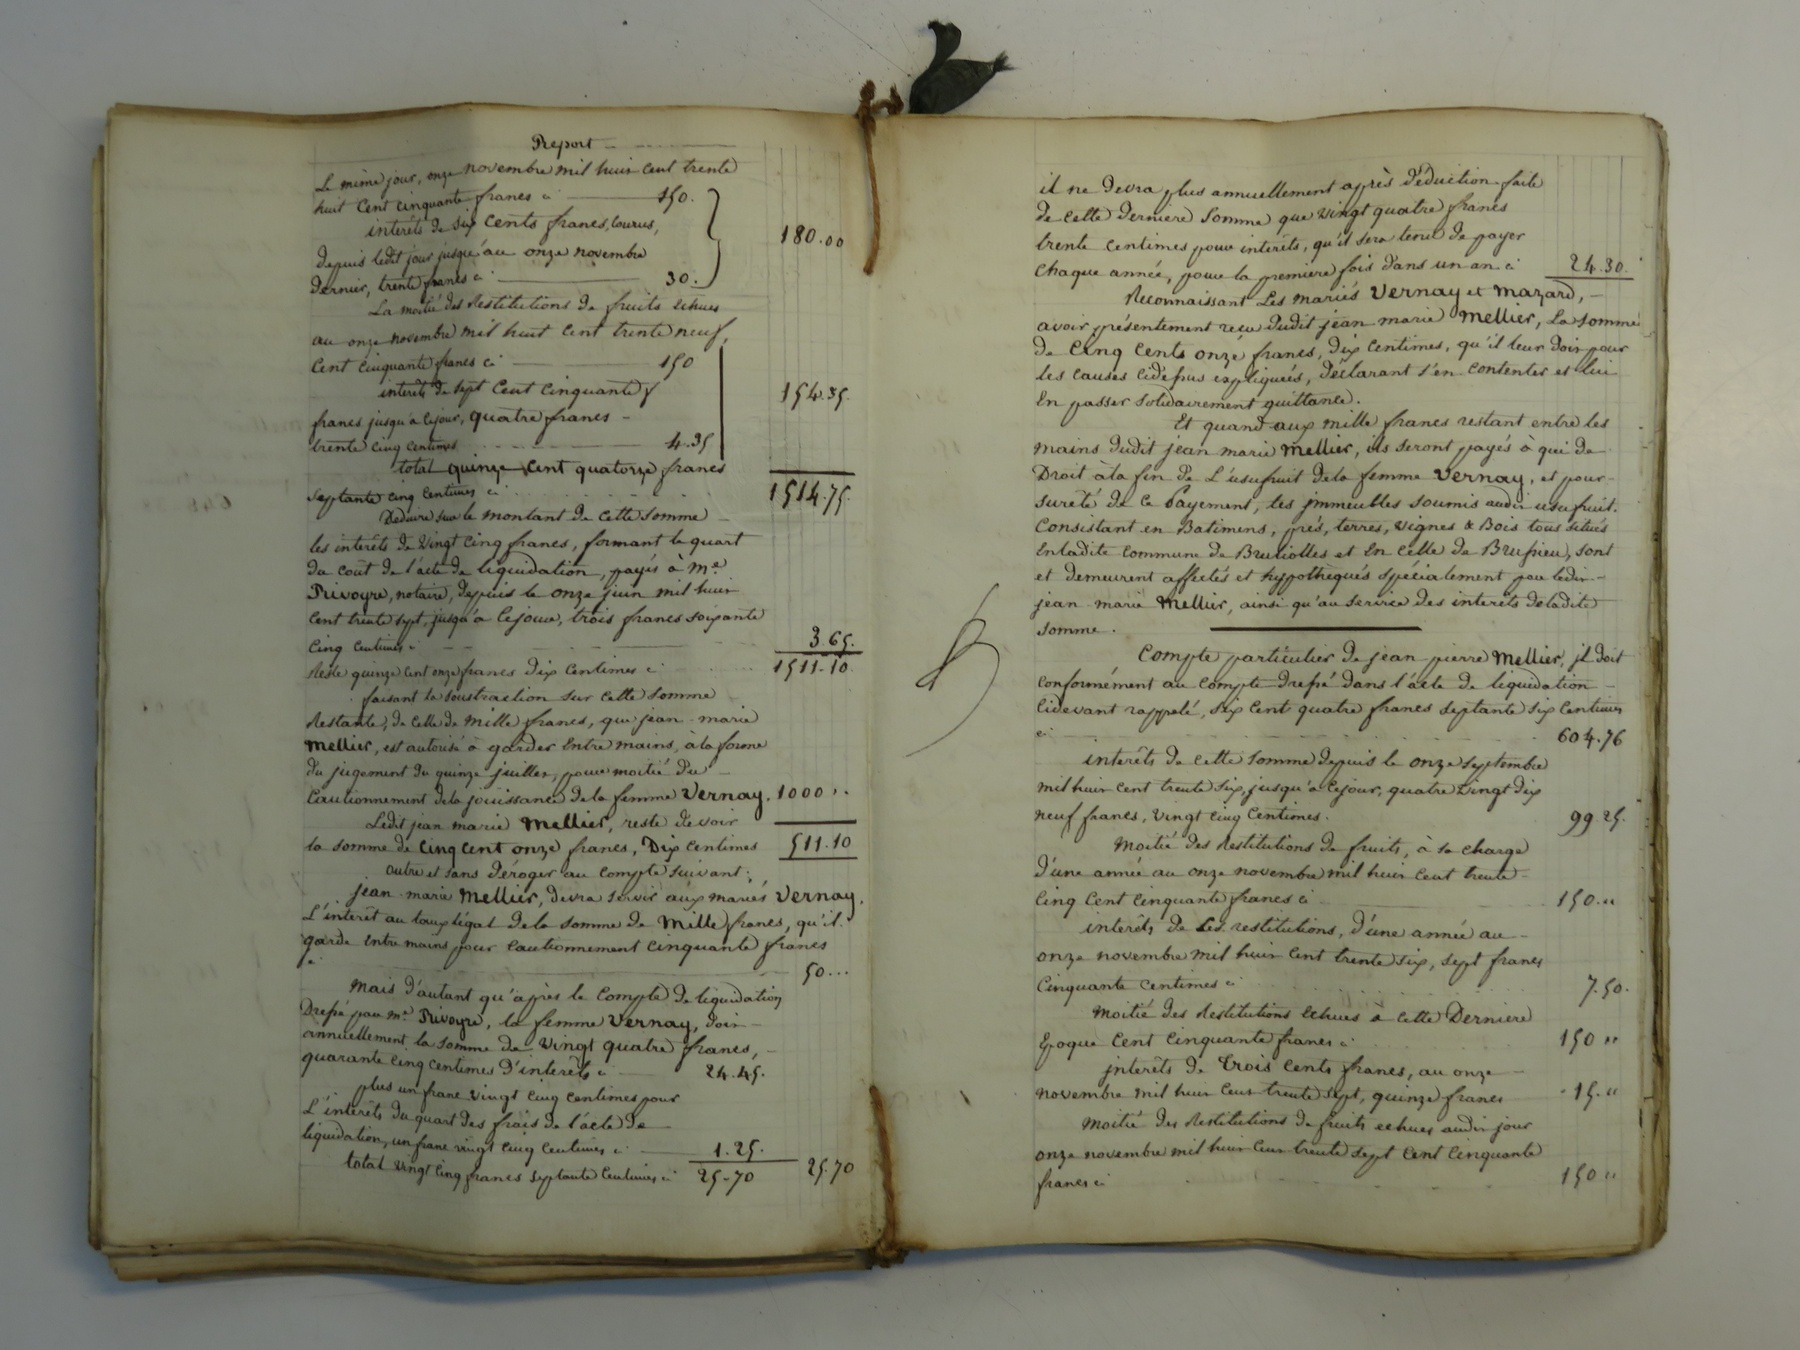 Report —
Le même jour, onze novembre mil huit cent trente
huit cent cinquante francs ci — 150.
intérêts de six cents francs, courus,
depuis ledit jour jusqu'au onze novembre
180.00
dernier, trente francs ci — 30.
La moitié des Restitutions de fruits echues
au onze novembre mil huit cent trente neuf,
cent cinquante francs ci — 150
intérêt de sept cent cinquante
154.35.
francs jusqu'à cejour, quatre francs —
trente cinq centimes — 4.35
total quinze cent quatorze francs
septante cinq centimes ci 1514.75.
Déduire sur le montant de cette somme —
les intérêts de vingt cinq francs, formant le quart
du coût de l'acte de liquidation, payés à Me
Privoyre, notaire, depuis le onze juin mil huit
cent trente sept, jusqu'à cejour, trois francs soixante
cinq centimes ci — 3 65.
Reste quinze cent onze francs dix centimes ci 1511.10
faisant la soustraction sur cette somme
Restante, de celle de mille francs, que jean-marie
Mellier, est autorisé à garder entre mains, à la forme
du jugement du quinze juillet, pour moitié du —
cautionnement dela jouissance dela femme Vernay. 1000 ..
Ledit jean marie Mellier, reste devoir
la somme de cinq cent onze francs, Dix centimes 511.10
outre et sans déroger au compte suivant;
jean-marie Mellier, devra servir aux mariés Vernay.
L'intérêt au taux légal dela somme de Mille francs, qu'il
garde entre mains pour cautionnement cinquante francs
ci — 50...
Mais d'autant qu'après le compte de liquidation
Dressé par Me Privoyre, la femme Vernay, doit —
annuellement la somme de vingt quatre francs, —
quarante cinq centimes d'intérêts ci — 24.45.
plus un franc vingt cinq centimes pour
L'intérêts du quart des frais de l'acte de
liquidation, un franc vingt cinq centimes ci — 1.25.
total vingt cinq francs septante centimes ci 25-70 25.70
il ne devra plus annuellement après déduction faite
de cette dernière somme que vingt quatre francs
trente centimes pour intérêts, qu'il sera tenu de payer
chaque année, pour la première fois dans un an ci 24.30.
Reconnaissant Les mariés Vernay et Mazard, —
avoir présentement reçu dudit jean marie Mellier, la somme
de cinq cents onze francs, dix centimes, qu'il leur doit pour
les causes cidessus expliquées, déclarant s'en contenter et lui
en passer solidairement quittance.
Et quand aux mille francs restant entre les
mains dudit jean marie Mellier, ils seront payés à qui de
Droit à la fin de L'usufruit dela femme Vernay, et pour —
sureté de ce Payement, les immeubles soumis audit usufruit.
Consistant en Batimens, prés, terres, vignes & Bois tous situés
en ladite commune de Brullioles et en celle de Brussieu, sont
et demeurent affectés et hypothequés spécialement par ledit —
jean marie Mellier, ainsi qu'au service des intérêts deladite
somme.
Compte particulier de jean pierre Mellier, il doit
conformément au compte dressé dans l'acte de liquidation —
cidevant rappelé, six cent quatre francs septante six centimes
ci — 604.76
intérêts de cette somme depuis le onze septembre
mil huit cent trente six, jusqu'à cejour, quatre vingt dix
neuf francs, vingt cinq centimes. 99.25.
Moitié des Restitutions de fruits, à sa charge
d'une année au onze novembre mil huit cent trente —
cinq cent cinquante francs ci 150. "
intérêts de ces restitutions, d'une année au —
onze novembre mil huit cent trente six, sept francs
cinquante centimes ci 7.50.
Moitié des Restitutions echues à cette Derniere
Epoque cent cinquante francs ci 150 "
intérêts de trois cents francs, au onze —
novembre mil huit cent trente sept, quinze francs 15. "
Moitié des Restitutions de fruits echues audit jour
onze novembre mil huit cent trente sept cent cinquante
francs ci 150 "